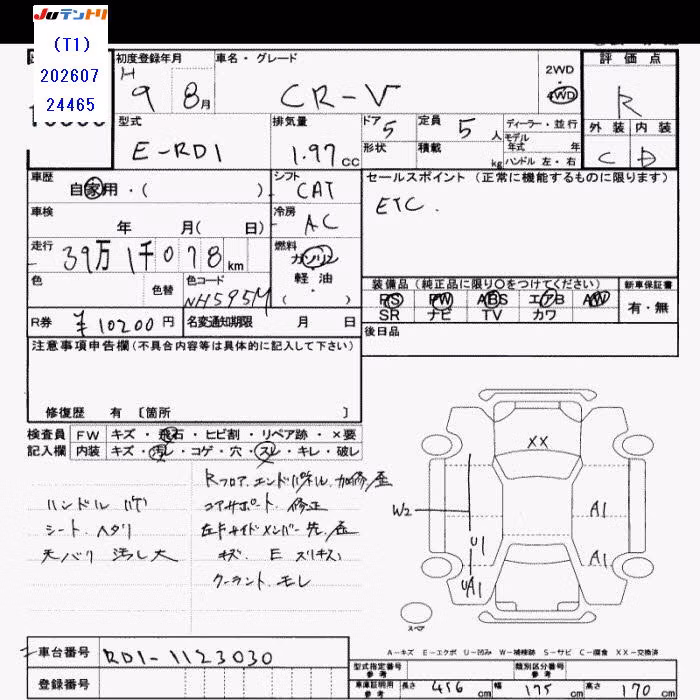 Juテントリ
(T1)
202607
24465
初度登録年月
H
9 8月
車名・グレード
CR-V
2WD
4WD
評価点
R
型式
E-RD1
排気量
1.97 cc
ドア 5
形状
定員 5 人
積載 kg
ディーラー・並行
モデル年式 年
ハンドル 左・右
外装 内装
C D
車歴
自家用・( )
シフト
CAT
セールスポイント (正常に機能するものに限ります)
ETC.
車検
年 月( 日)
冷房
AC
走行
39万1千078 km
燃料
ガソリン
軽油
( )
色
色替
色コード
NH595M
装備品 (純正品に限り○をつけてください)
PS PW ABS エアB AW
SR ナビ TV カワ
新車保証書
有・無
R券 ¥10200円
名変通知期限 月 日
後日品
注意事項申告欄 (不具合内容等は具体的に記入して下さい)
修復歴 有 〔箇所 〕
検査員 FW キズ・飛石・ヒビ割・リペア跡・×要
記入欄 内装 キズ・汚レ・コゲ・穴・スレ・キレ・破レ
Rフロア.エンドパネル.加修/歪
コアサポート.修正
左Fサイドメンバー先.歪
キズ. E スリキズ
クーラント.モレ
シート.ヘタリ
天バリ 汚レ大
XX
W2
U1
UA1
A1
A1
スペア
A-キズ E-エクボ U-凹み W-補修跡 S-サビ C-腐食 XX-交換済
車台番号 RD1-1123030
登録番号
型式指定番号 参考
類別区分番号 参考
車庫証明用 参考 長さ 456 cm 幅 175 cm 高さ 70 cm